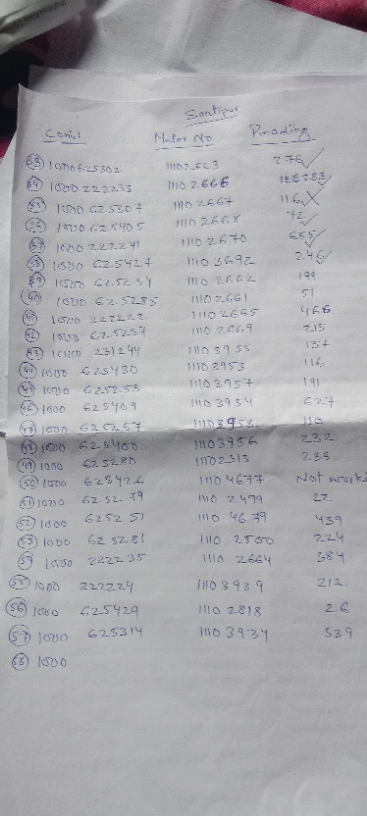 Santipur
Cons.I Meter No P.reading
33 1000625302 11102663 276
34 1000 222233 11102666 283
35 1000 625307 11102667 116
36 1000 625405 11102668 72
37 1000 222241 11102670 685
38 1000 625427 11103692 246
39 1000 625234 11102662 199
40 1000 625285 11102661 51
41 1000 222222 11102665 466
42 1000 625257 11102669 215
43 1000 231244 11103955 137
44 1000 625430 11103953 116
45 1000 625253 11103957 191
46 1000 625409 11103954 627
47 1000 625267 11103958 113
48 1000 625400 11103956 232
49 1000 625280 11102313 235
50 1000 625426 11104677 Not worki
51 1000 625279 11102479 22
52 1000 625251 11104679 439
53 1000 625281 11102500 224
54 1000 222235 11102664 384
55 1000 222224 11103939 212
56 1000 625429 11102818 26
57 1000 625314 11103934 539
58 1000